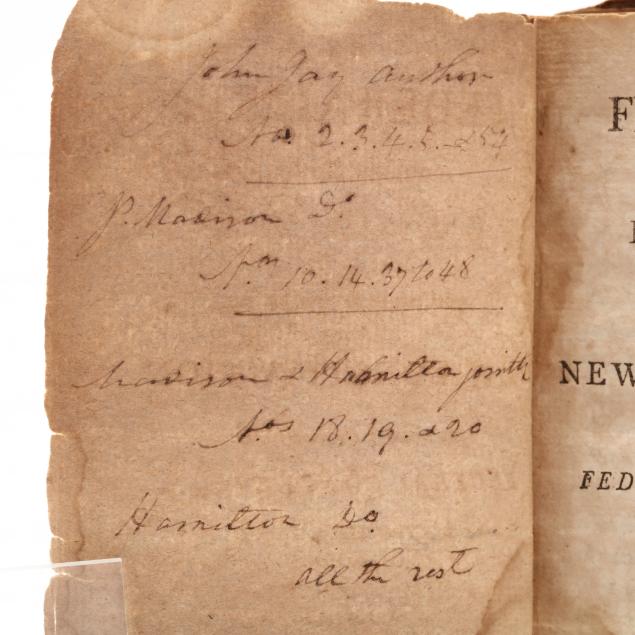 John Jay author
Nos. 2. 3. 4. 5. & 54
J. Madison Do
Nos 10. 14. 37 to 48
Madison & Hamilton jointly
Nos 18. 19. & 20
Hamilton Do
all the rest
F
NEW
FED